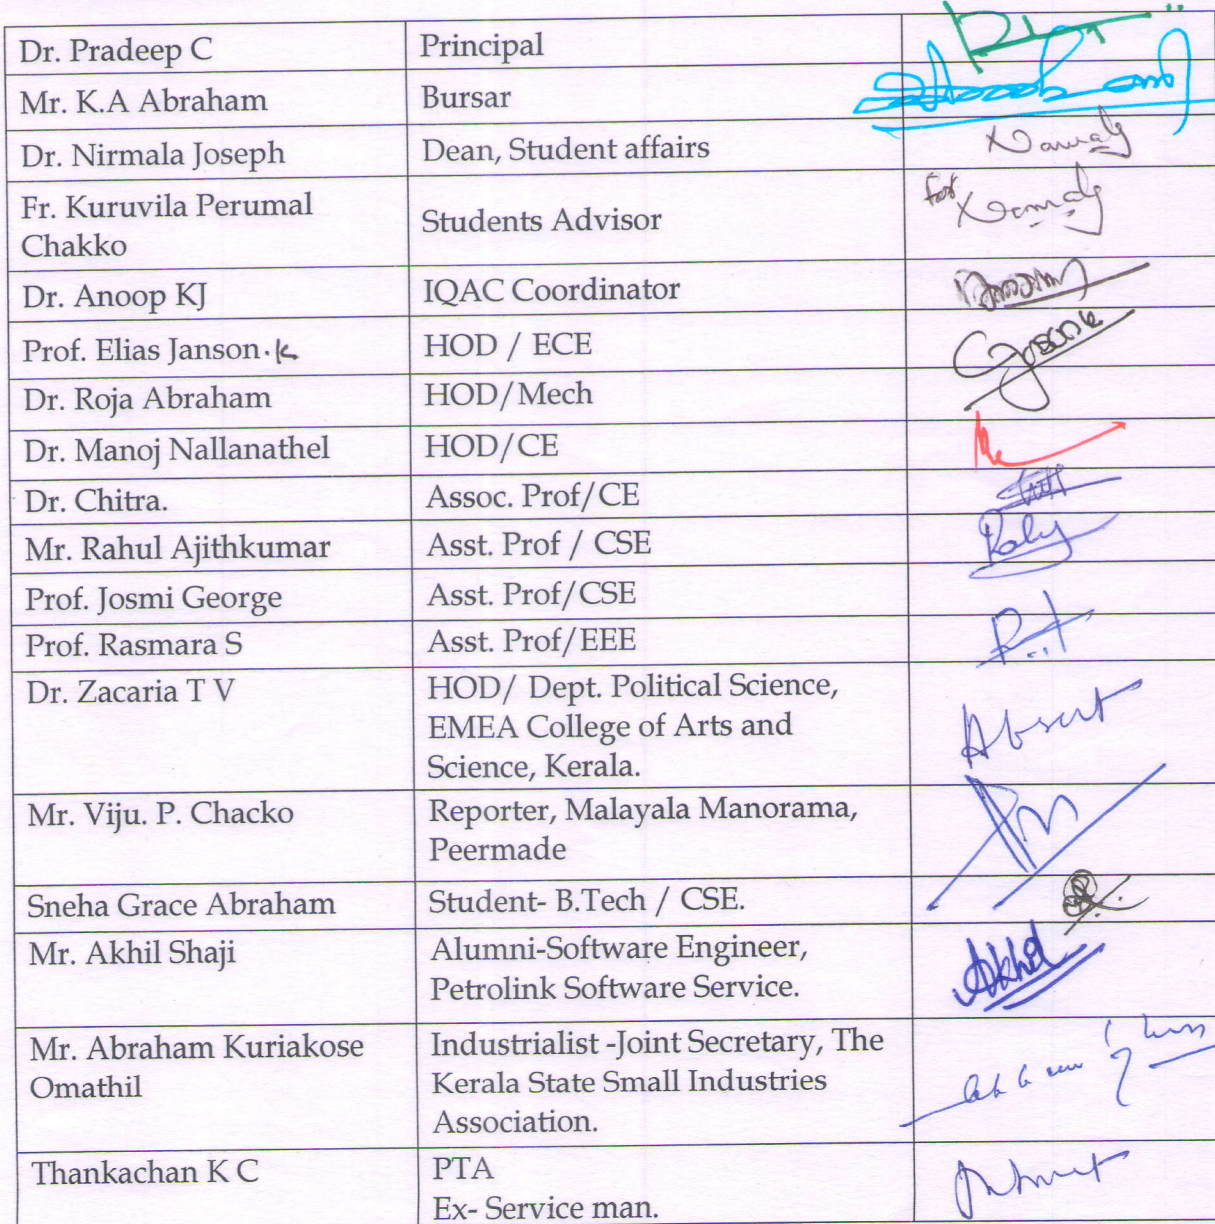 Dr. Pradeep C
Principal
Mr. K.A Abraham
Bursar
Dr. Nirmala Joseph
Dean, Student affairs
Fr. Kuruvila Perumal
Chakko
Students Advisor
for
Dr. Anoop KJ
IQAC Coordinator
Prof. Elias Janson.K
HOD / ECE
Dr. Roja Abraham
HOD/Mech
Dr. Manoj Nallanathel
HOD/CE
Dr. Chitra.
Assoc. Prof/CE
Mr. Rahul Ajithkumar
Asst. Prof / CSE
Prof. Josmi George
Asst. Prof/CSE
Prof. Rasmara S
Asst. Prof/EEE
Dr. Zacaria T V
HOD/ Dept. Political Science,
EMEA College of Arts and
Science, Kerala.
Absent
Mr. Viju. P. Chacko
Reporter, Malayala Manorama,
Peermade
Sneha Grace Abraham
Student- B.Tech / CSE.
Mr. Akhil Shaji
Alumni-Software Engineer,
Petrolink Software Service.
Akhil
Mr. Abraham Kuriakose
Omathil
Industrialist -Joint Secretary, The
Kerala State Small Industries
Association.
Thankachan K C
PTA
Ex- Service man.